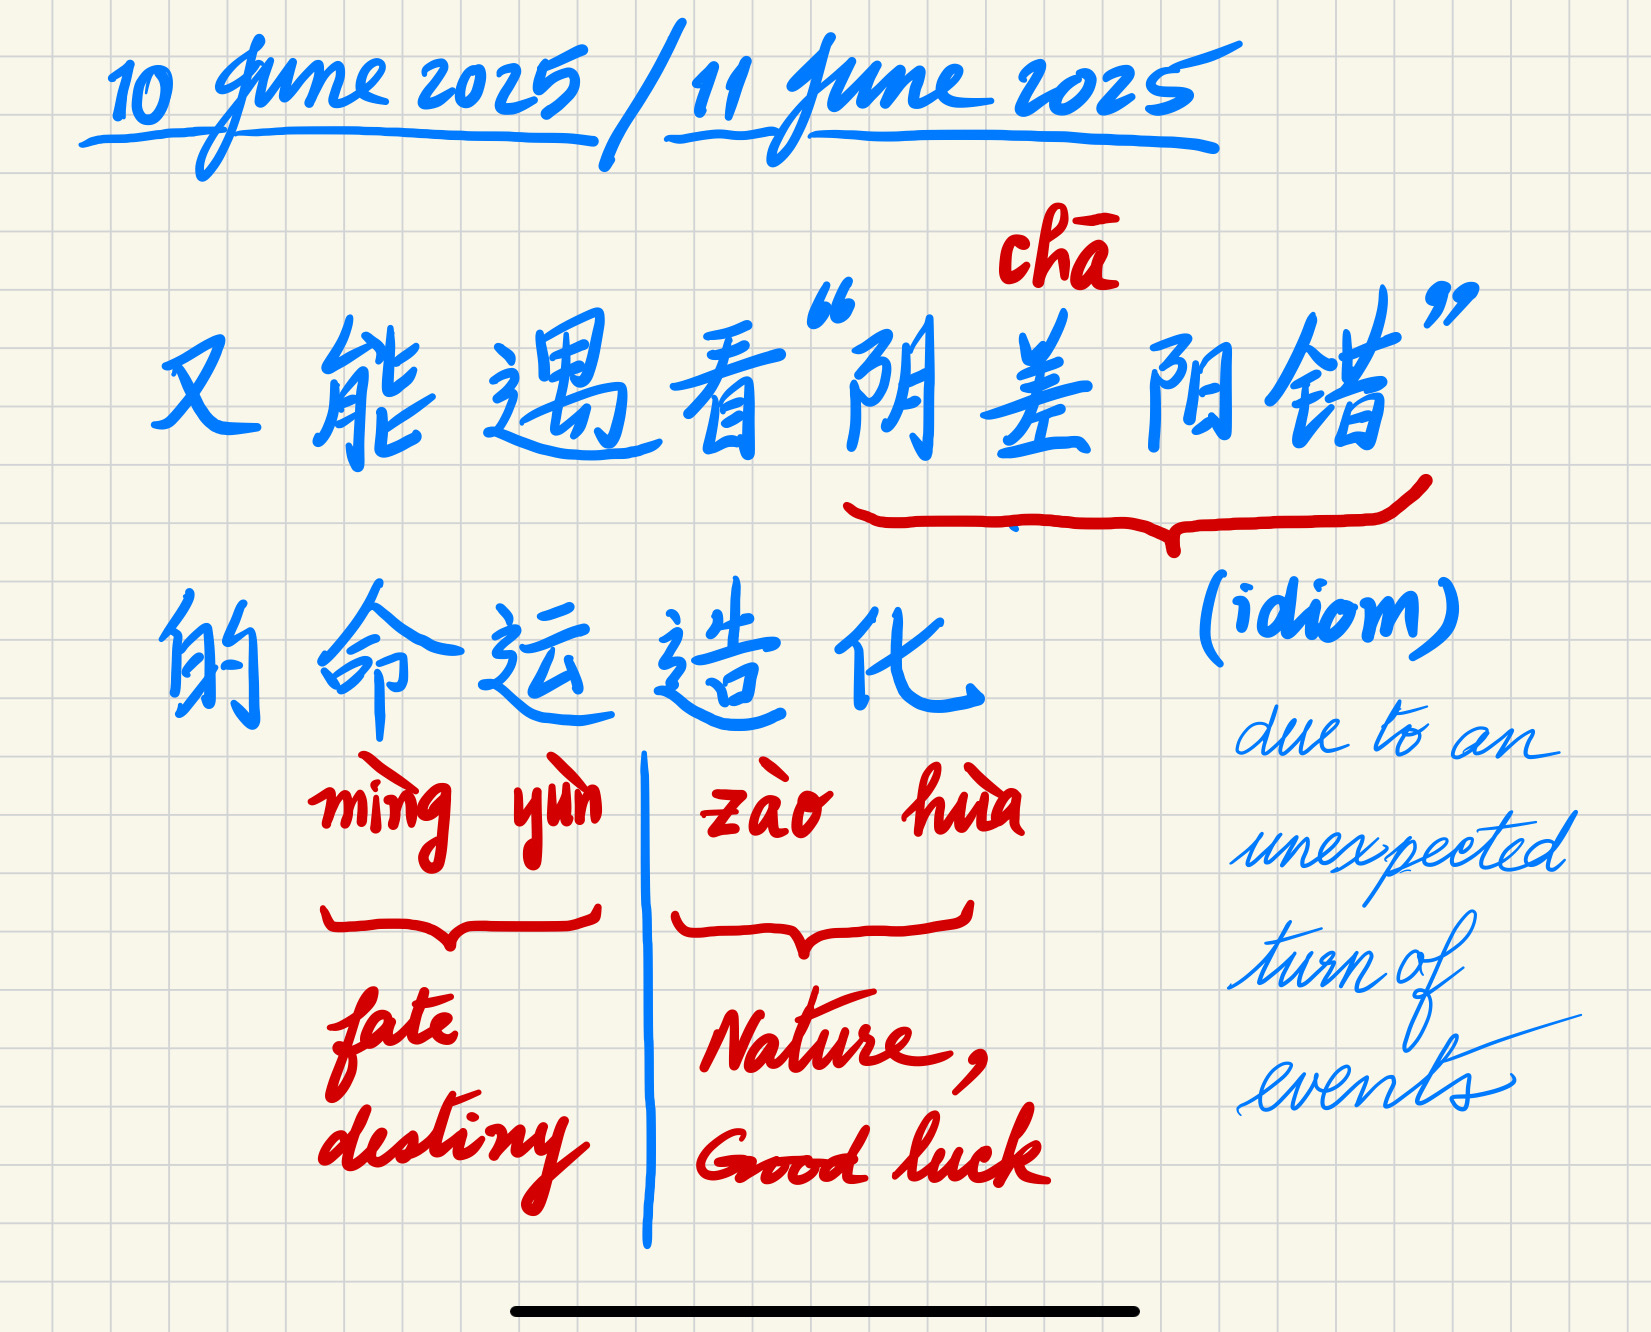 10 June 2025 / 11 June 2025
chā
又能遇看“阴差阳错”
(idiom)
due to an
unexpected
turn of
events
的命运造化
mìng yùn zào hùa
fate
destiny
Nature,
Good luck